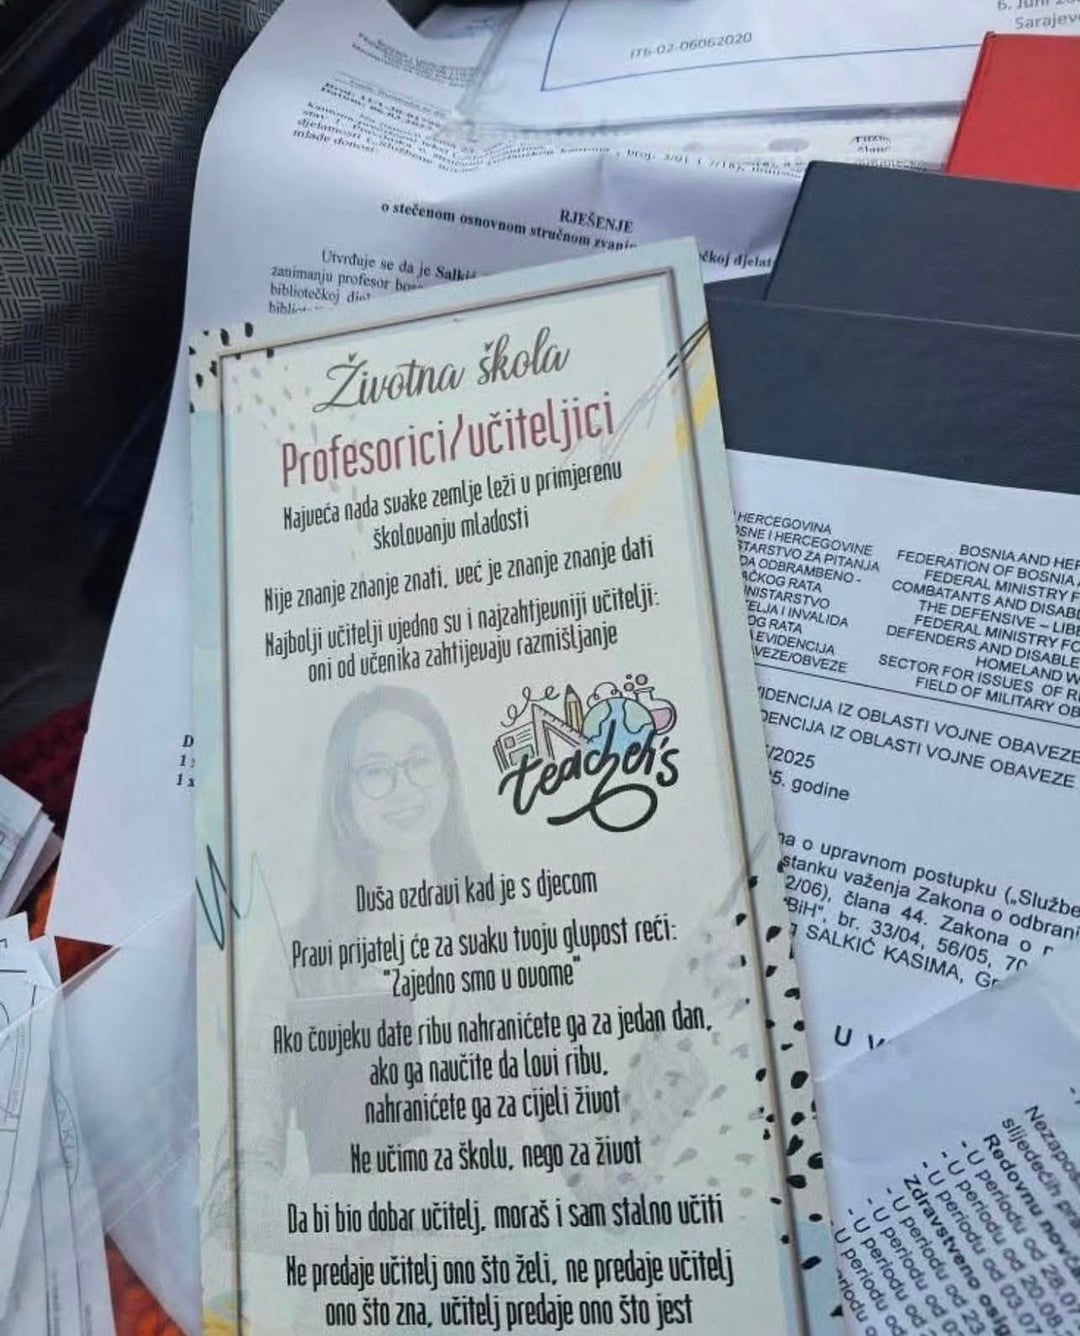 6. Juni
Sarajevo
ITB-02-06062020
mlade donosi
RJEŠENJE
o stečenom osnovnom stručnom zvanju
Utvrđuje se da je Salkić
zanimanju profesor
bibliotečkoj
Životna škola
Profesorici/učiteljici
Najveća nada svake zemlje leži u primjerenu
školovanju mladosti
Nije znanje znanje znati, već je znanje znanje dati
Najbolji učitelji ujedno su i najzahtjevniji učitelji:
oni od učenika zahtijevaju razmišljanje
teacher's
Duša ozdravi kad je s djecom
Pravi prijatelj će za svaku tvoju glupost reći:
"Zajedno smo u ovome"
Ako čovjeku date ribu nahranićete ga za jedan dan,
ako ga naučite da lovi ribu,
nahranićete ga za cijeli život
Ne učimo za školu, nego za život
Da bi bio dobar učitelj, moraš i sam stalno učiti
Ne predaje učitelj ono što želi, ne predaje učitelj
ono što zna, učitelj predaje ono što jest
HERCEGOVINA
SNE I HERCEGOVINE
STARSTVO ZA PITANJA
DA ODBRAMBENO -
AČKOG RATA
NISTARSTVO
TELJA I INVALIDA
OG RATA
EVIDENCIJA
VEZE/OBVEZE
BOSNIA AND HER
FEDERATION OF BOSNIA
FEDERAL MINISTRY F
COMBATANTS AND DISAB
THE DEFENSIVE – LIBE
FEDERAL MINISTRY FO
DEFENDERS AND DISABLE
HOMELAND W
SECTOR FOR ISSUES OF R
FIELD OF MILITARY OB
IDENCIJA IZ OBLASTI VOJNE OBAVEZE
DENCIJA IZ OBLASTI VOJNE OBAVEZE
/2025
5. godine
na o upravnom postupku („Službe
stanku važenja Zakona o odbrani
2/06), člana 44. Zakona o
BiH", br. 33/04, 56/05, 70
SALKIĆ KASIMA, Gr
U V
Nezapos
slijedećih pra
Redovnu novča
- U periodu od 28.07
- U periodu od 20.08.
- U periodu od
Zdravstveno osig
- U periodu od 23
- U periodu od 03.07
- U periodu od 0
- U periodu o